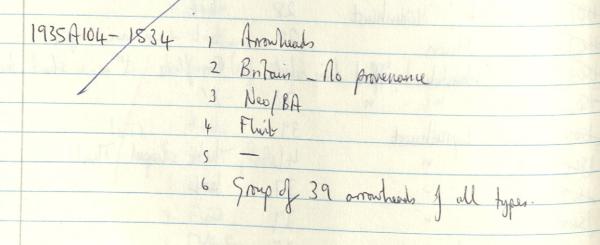 1935A104-1534 1 Arrowheads
2 Britain - No provenance
3 Neo/BA
4 Flint
5 —
6 Group of 39 arrowheads of all types.